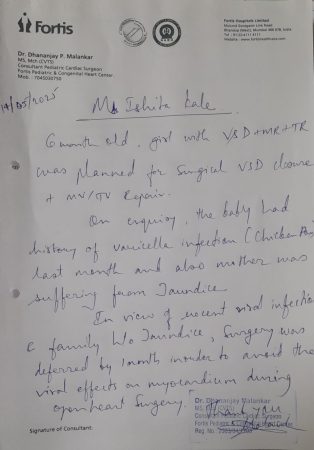 Fortis
Fortis Hospitals Limited
Mulund Goregaon Link Road,
Bhandup (West), Mumbai 400 078, India
Website : www.fortishealthcare.com
Dr. Dhananjay P. Malankar
MS, Mch (CVTS)
Consultant Pediatric Cardiac Surgeon
Fortis Pediatric & Congenital Heart Center
Mob.
14/05/2025
Ms Ishita Kale
6 month old, girl with VSD+MR+TR
was planned for Surgical VSD closure
+ MV/TV Repair.
On enquiry, the baby had
history of varicella infection (Chicken Pox)
last month and also mother was
suffering from Jaundice
In view of recent viral infection
c family h/o Jaundice, Surgery was
deferred by 1 month inorder to avoid the
viral effects on myocardium during
openheart Surgery. Thank you
Dr. Dhananjay Malankar
MS, MCh (CVTS)
Consultant Pediatric Cardiac Surgeon
Fortis Pediatric &
Reg. No.
Signature of Consultant: